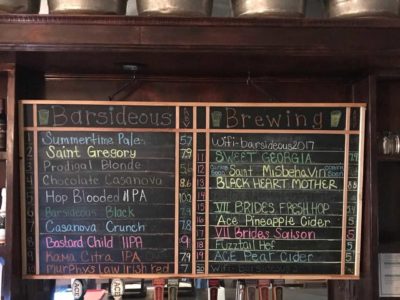 Barsideous
ABV
Brewing
Summertime Pale 5.7
Saint Gregory 7.9
Prodigal Blonde
Chocolate Casanova 8.6
Hop Blooded IIPA
Barsideous Black 7.9
Casanova Crunch 7.8
Bastard Child IIPA
Kama Citra IPA
Murphys Law Irish Red 7
Wifi-barsideous2017
11 SWEET GEORGIA 7.9
12 Coming Soon Saint Misbehavin Coming Soon
13 BLACK HEART MOTHER
15 VII BRIDES FRESH HOP
16 Ace Pineapple Cider 5
17 VII Brides Saison
18 Fuzztail Hef 5
19 ACE Pear Cider 5
20